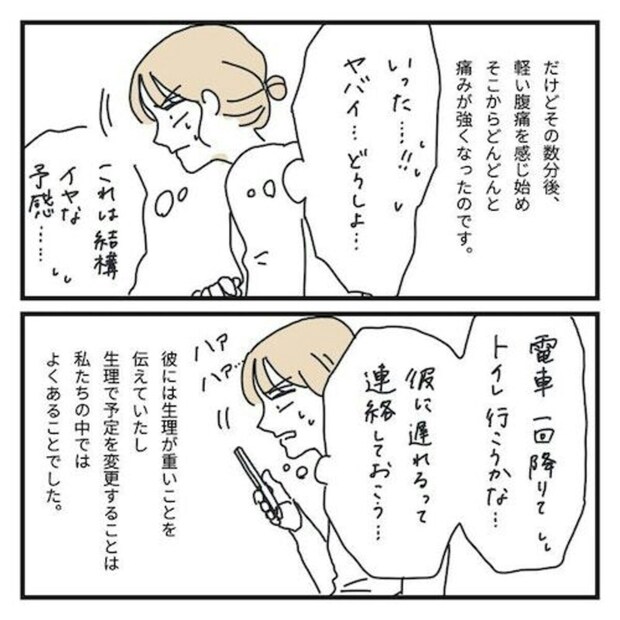 だけどその数分後、
軽い腹痛を感じ始め
そこからどんどんと
痛みが強くなったのです。
いった……!!
ヤバイ…どうしよ…
これは結構
イヤな
予感……
電車一回降りて
トイレ行こうかな…
彼に遅れるって
連絡しておこう…
ハァ
ハァ…
彼には生理が重いことを
伝えていたし
生理で予定を変更することは
私たちの中では
よくあることでした。